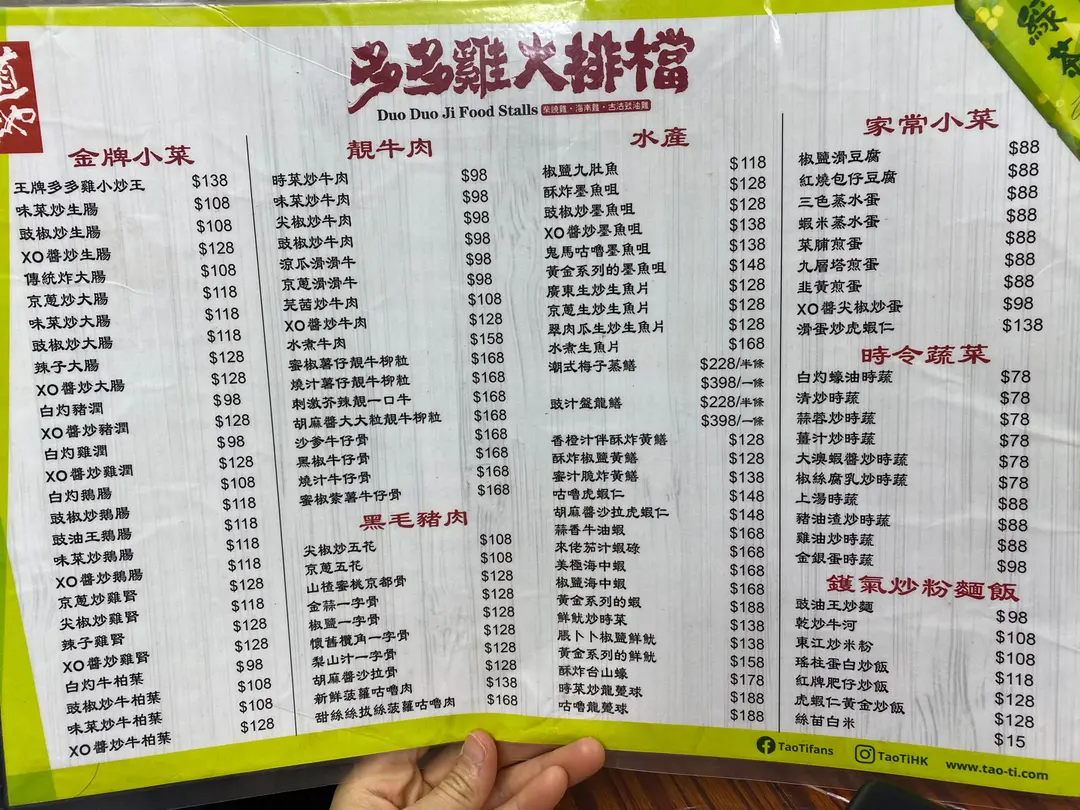 多多雞大排檔
Duo Duo Ji Food Stalls 柴燒雞・海南雞・古法豉油雞
金牌小菜
王牌多多雞小炒王 $138
味菜炒生腸 $108
豉椒炒生腸 $108
XO醬炒生腸 $128
傳統炸大腸 $108
京蔥炒大腸 $118
味菜炒大腸 $118
豉椒炒大腸 $118
辣子大腸 $128
XO醬炒大腸 $128
白灼豬潤 $98
XO醬炒豬潤 $128
白灼雞潤 $98
XO醬炒雞潤 $128
白灼鵝腸 $108
豉椒炒鵝腸 $118
豉油王鵝腸 $118
味菜炒鵝腸 $118
XO醬炒鵝腸 $118
京蔥炒雞腎 $128
尖椒炒雞腎 $118
辣子雞腎 $128
XO醬炒雞腎 $128
白灼牛柏葉 $98
豉椒炒牛柏葉 $108
味菜炒牛柏葉 $108
XO醬炒牛柏葉 $128
靚牛肉
時菜炒牛肉 $98
味菜炒牛肉 $98
尖椒炒牛肉 $98
豉椒炒牛肉 $98
涼瓜滑滑牛 $98
京蔥滑滑牛 $98
芫茜炒牛肉 $108
XO醬炒牛肉 $128
水煮牛肉 $158
蜜椒薯仔靚牛柳粒 $168
燒汁薯仔靚牛柳粒 $168
刺激芥辣靚一口牛 $168
胡麻醬大大粒靚牛柳粒 $168
沙爹牛仔骨 $168
黑椒牛仔骨 $168
燒汁牛仔骨 $168
蜜椒紫薯牛仔骨 $168
黑毛豬肉
尖椒炒五花 $108
京蔥五花 $108
山楂蜜桃京都骨 $128
金蒜一字骨 $128
椒鹽一字骨 $128
懷舊欖角一字骨 $128
梨山汁一字骨 $128
胡麻醬沙拉骨 $128
新鮮菠蘿咕嚕肉 $138
甜絲絲拔絲菠蘿咕嚕肉 $168
水產
椒鹽九肚魚 $118
酥炸墨魚咀 $128
豉椒炒墨魚咀 $128
XO醬炒墨魚咀 $138
鬼馬咕嚕墨魚咀 $138
黃金系列的墨魚咀 $148
廣東生炒生魚片 $128
京蔥生炒生魚片 $128
翠肉瓜生炒生魚片 $128
水煮生魚片 $168
潮式梅子蒸鱔 $228/半條
$398/一條
豉汁盤龍鱔 $228/半條
$398/一條
香橙汁伴酥炸黃鱔 $128
酥炸椒鹽黃鱔 $128
蜜汁脆炸黃鱔 $138
咕嚕虎蝦仁 $148
胡麻醬沙拉虎蝦仁 $148
蒜香牛油蝦 $168
來佬茄汁蝦碌 $168
美極海中蝦 $168
椒鹽海中蝦 $168
黃金系列的蝦 $188
鮮魷炒時菜 $138
脹卜卜椒鹽鮮魷 $138
黃金系列的鮮魷 $158
酥炸台山蠔 $178
時菜炒龍躉球 $188
咕嚕龍躉球 $188
家常小菜
椒鹽滑豆腐 $88
紅燒包仔豆腐 $88
三色蒸水蛋 $88
蝦米蒸水蛋 $88
菜脯煎蛋 $88
九層塔煎蛋 $88
韭黃煎蛋 $88
XO醬尖椒炒蛋 $98
滑蛋炒虎蝦仁 $138
時令蔬菜
白灼蠔油時蔬 $78
清炒時蔬 $78
蒜蓉炒時蔬 $78
薑汁炒時蔬 $78
大澳蝦醬炒時蔬 $78
椒絲腐乳炒時蔬 $78
上湯時蔬 $88
豬油渣炒時蔬 $88
雞油炒時蔬 $88
金銀蛋時蔬 $98
鑊氣炒粉麵飯
豉油王炒麵 $98
乾炒牛河 $108
東江炒米粉 $108
瑤柱蛋白炒飯 $118
紅牌肥仔炒飯 $128
虎蝦仁黃金炒飯 $128
絲苗白米 $15
TaoTifans TaoTiHK www.tao-ti.com